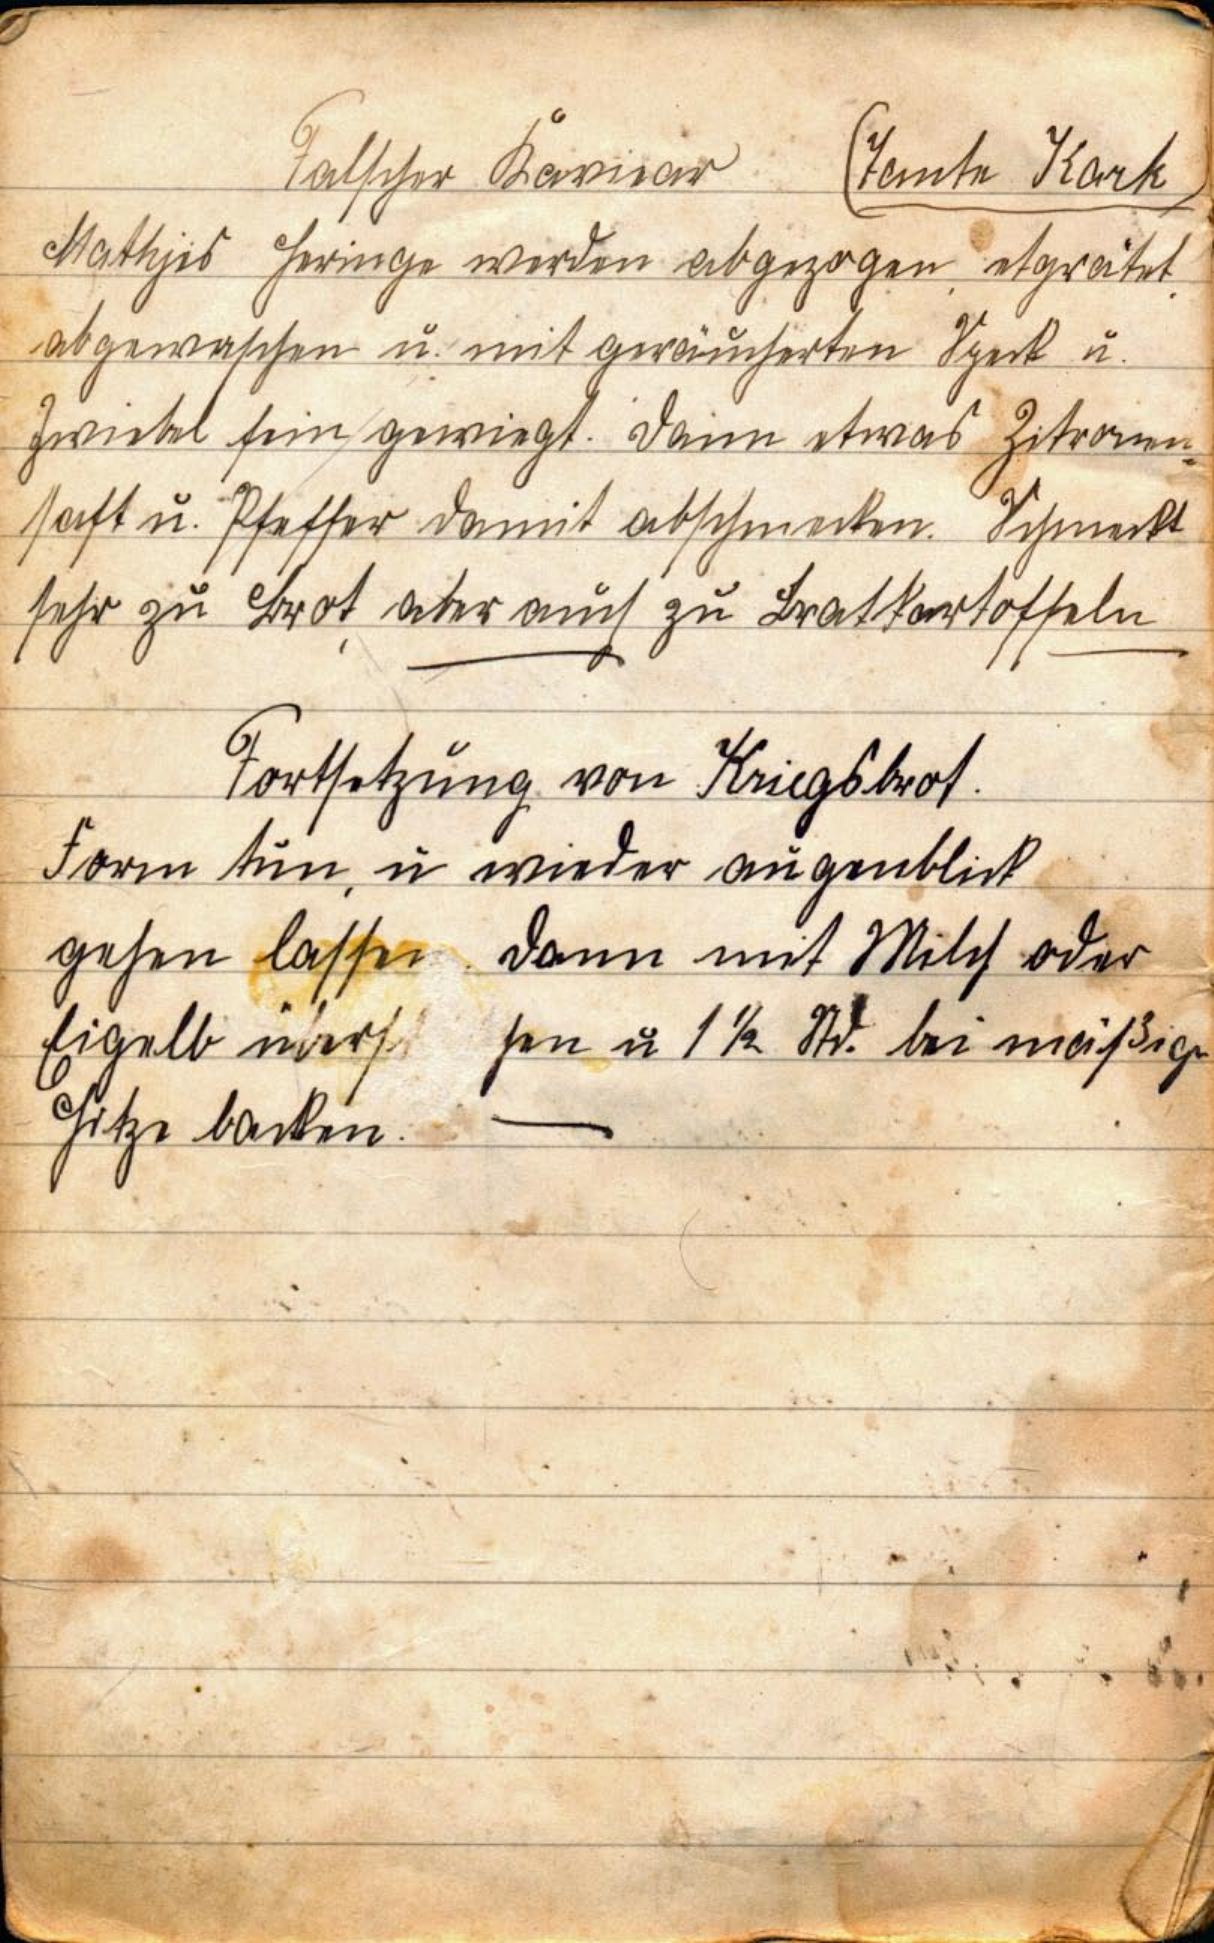 Falscher Kaviear (Tante Kark)
Mathjes Heringe werden abgezogen, etgrätet,
abgewaschen u. mit geräucherten Speck u.
Zwiebel fein gewiegt. Dann etwas Zitronen-
saft u. Pfeffer damit abschmecken. Schmeckt
sehr zu Brot, aber auch zu Bratkartoffeln
Fortsetzung von Kriegsbrot.
Form tun, u wieder augenblick
gehen lassen. Dann mit Milch oder
Eigelb u 1 ½ Std. bei mäßig
Hitze backen.